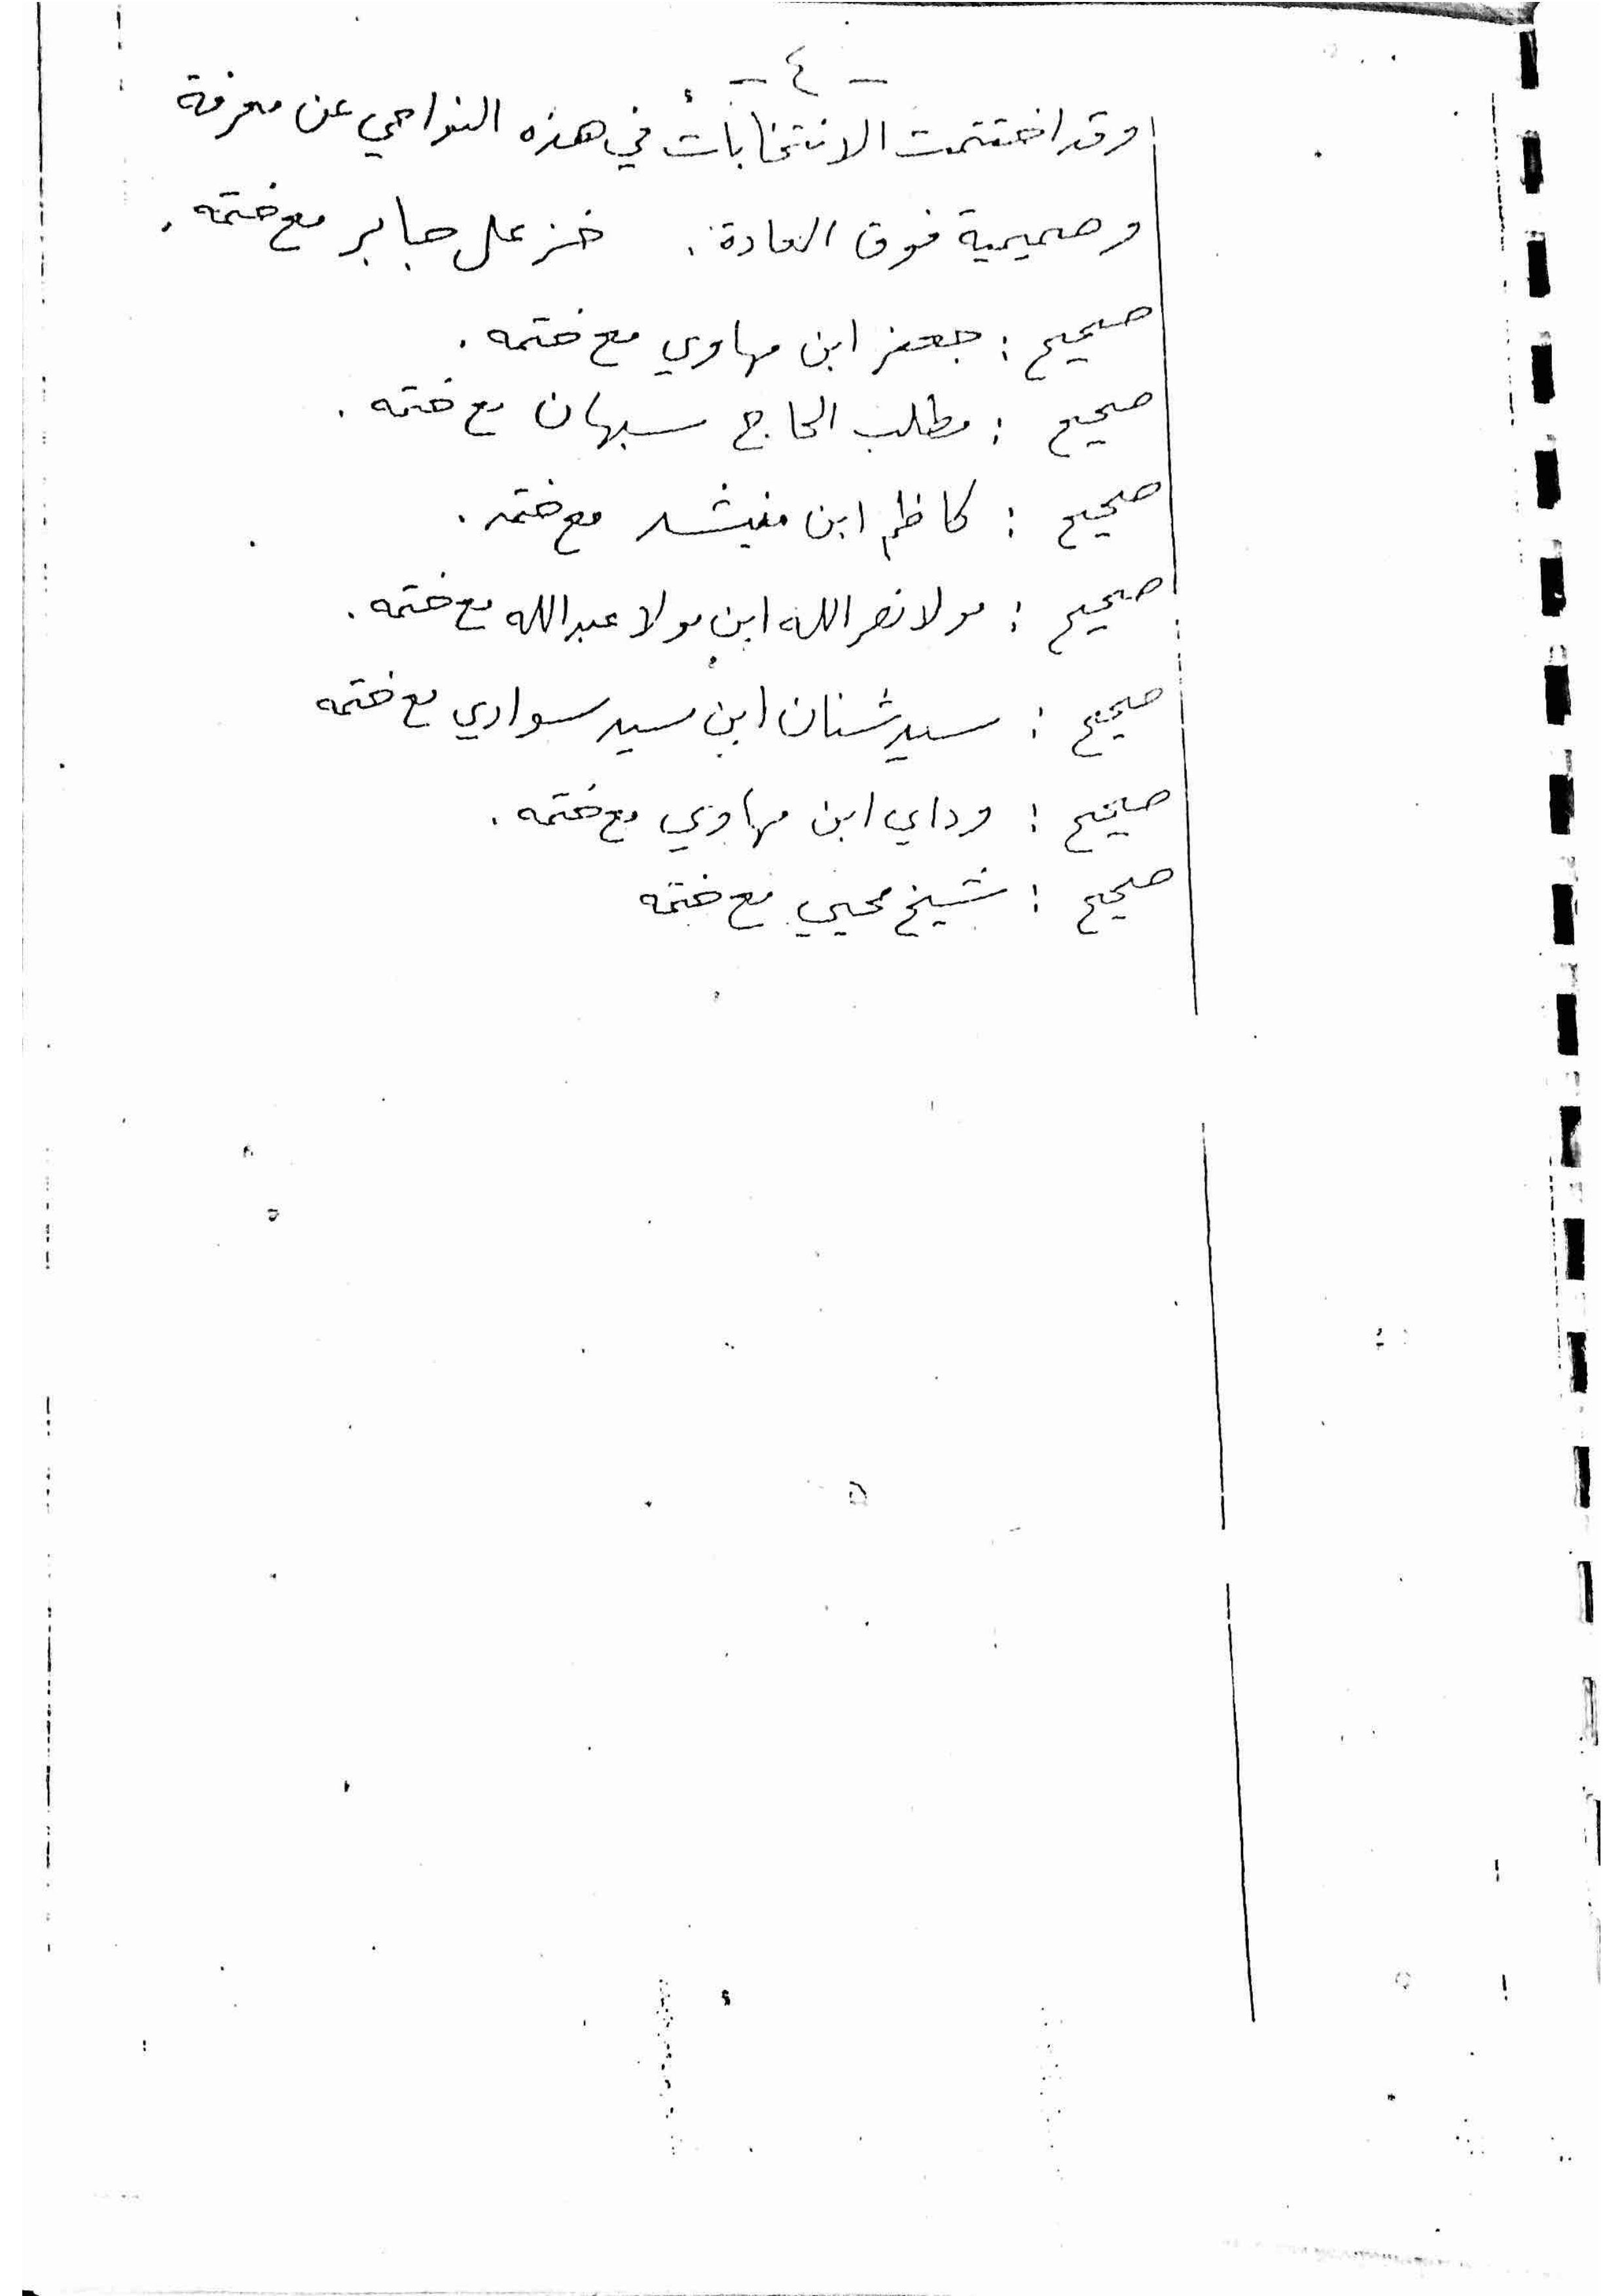 - ٤ -
وقد اختتمت الانتخابات في هذه النواحي عن معرفة
وصميمية فوق العادة. خزعل جابر مع ختمه.
صحيح : جعفر ابن مهاوي مع ختمه.
صحيح : مطلب الحاج سبهان مع ختمه.
صحيح : كاظم ابن منيشد مع ختمه.
صحيح : مولا نصر الله ابن مولا عبد الله مع ختمه.
صحيح : سيد شنان ابن سيد سواري مع ختمه
صحيح : وداي ابن مهاوي مع ختمه.
صحيح : شيخ محيي مع ختمه